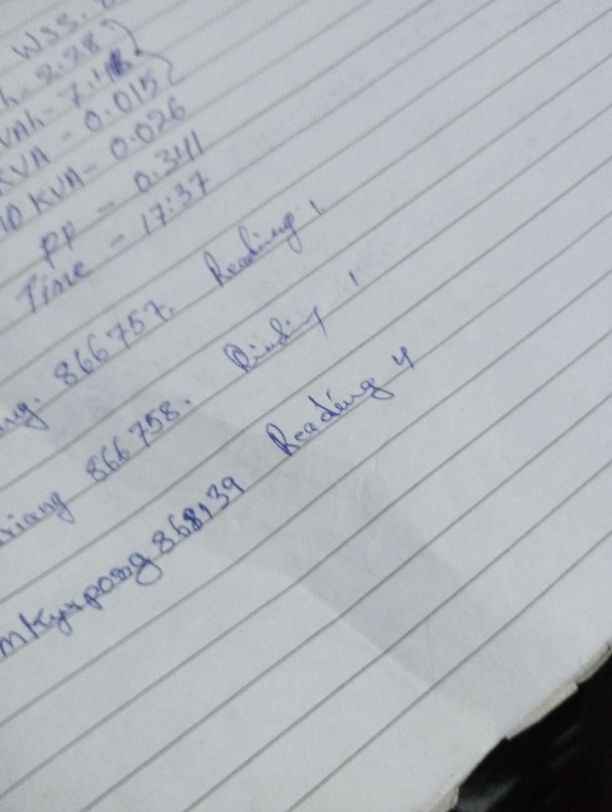 W33.
h = 2.28
VAh = 7.
KVA - 0.015
KVA - 0.026
PF - 0.341
Time - 17:37
ng. 866757. Reading 1
riang 866758. Reading 1
mkyrpong 868139 Reading 4